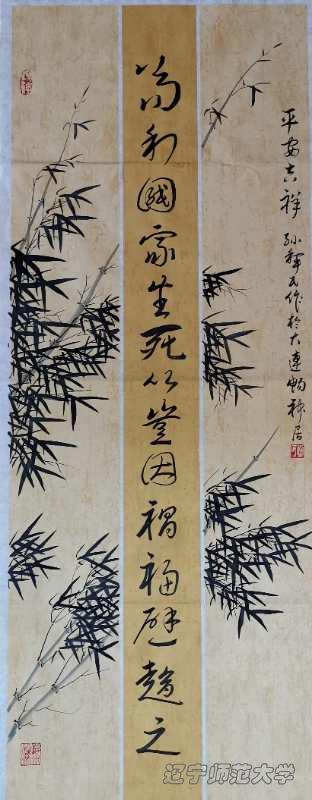 平安吉祥 孙 作於大連 居
苟利國家生死以豈因禍福避趨之
辽宁师范大学